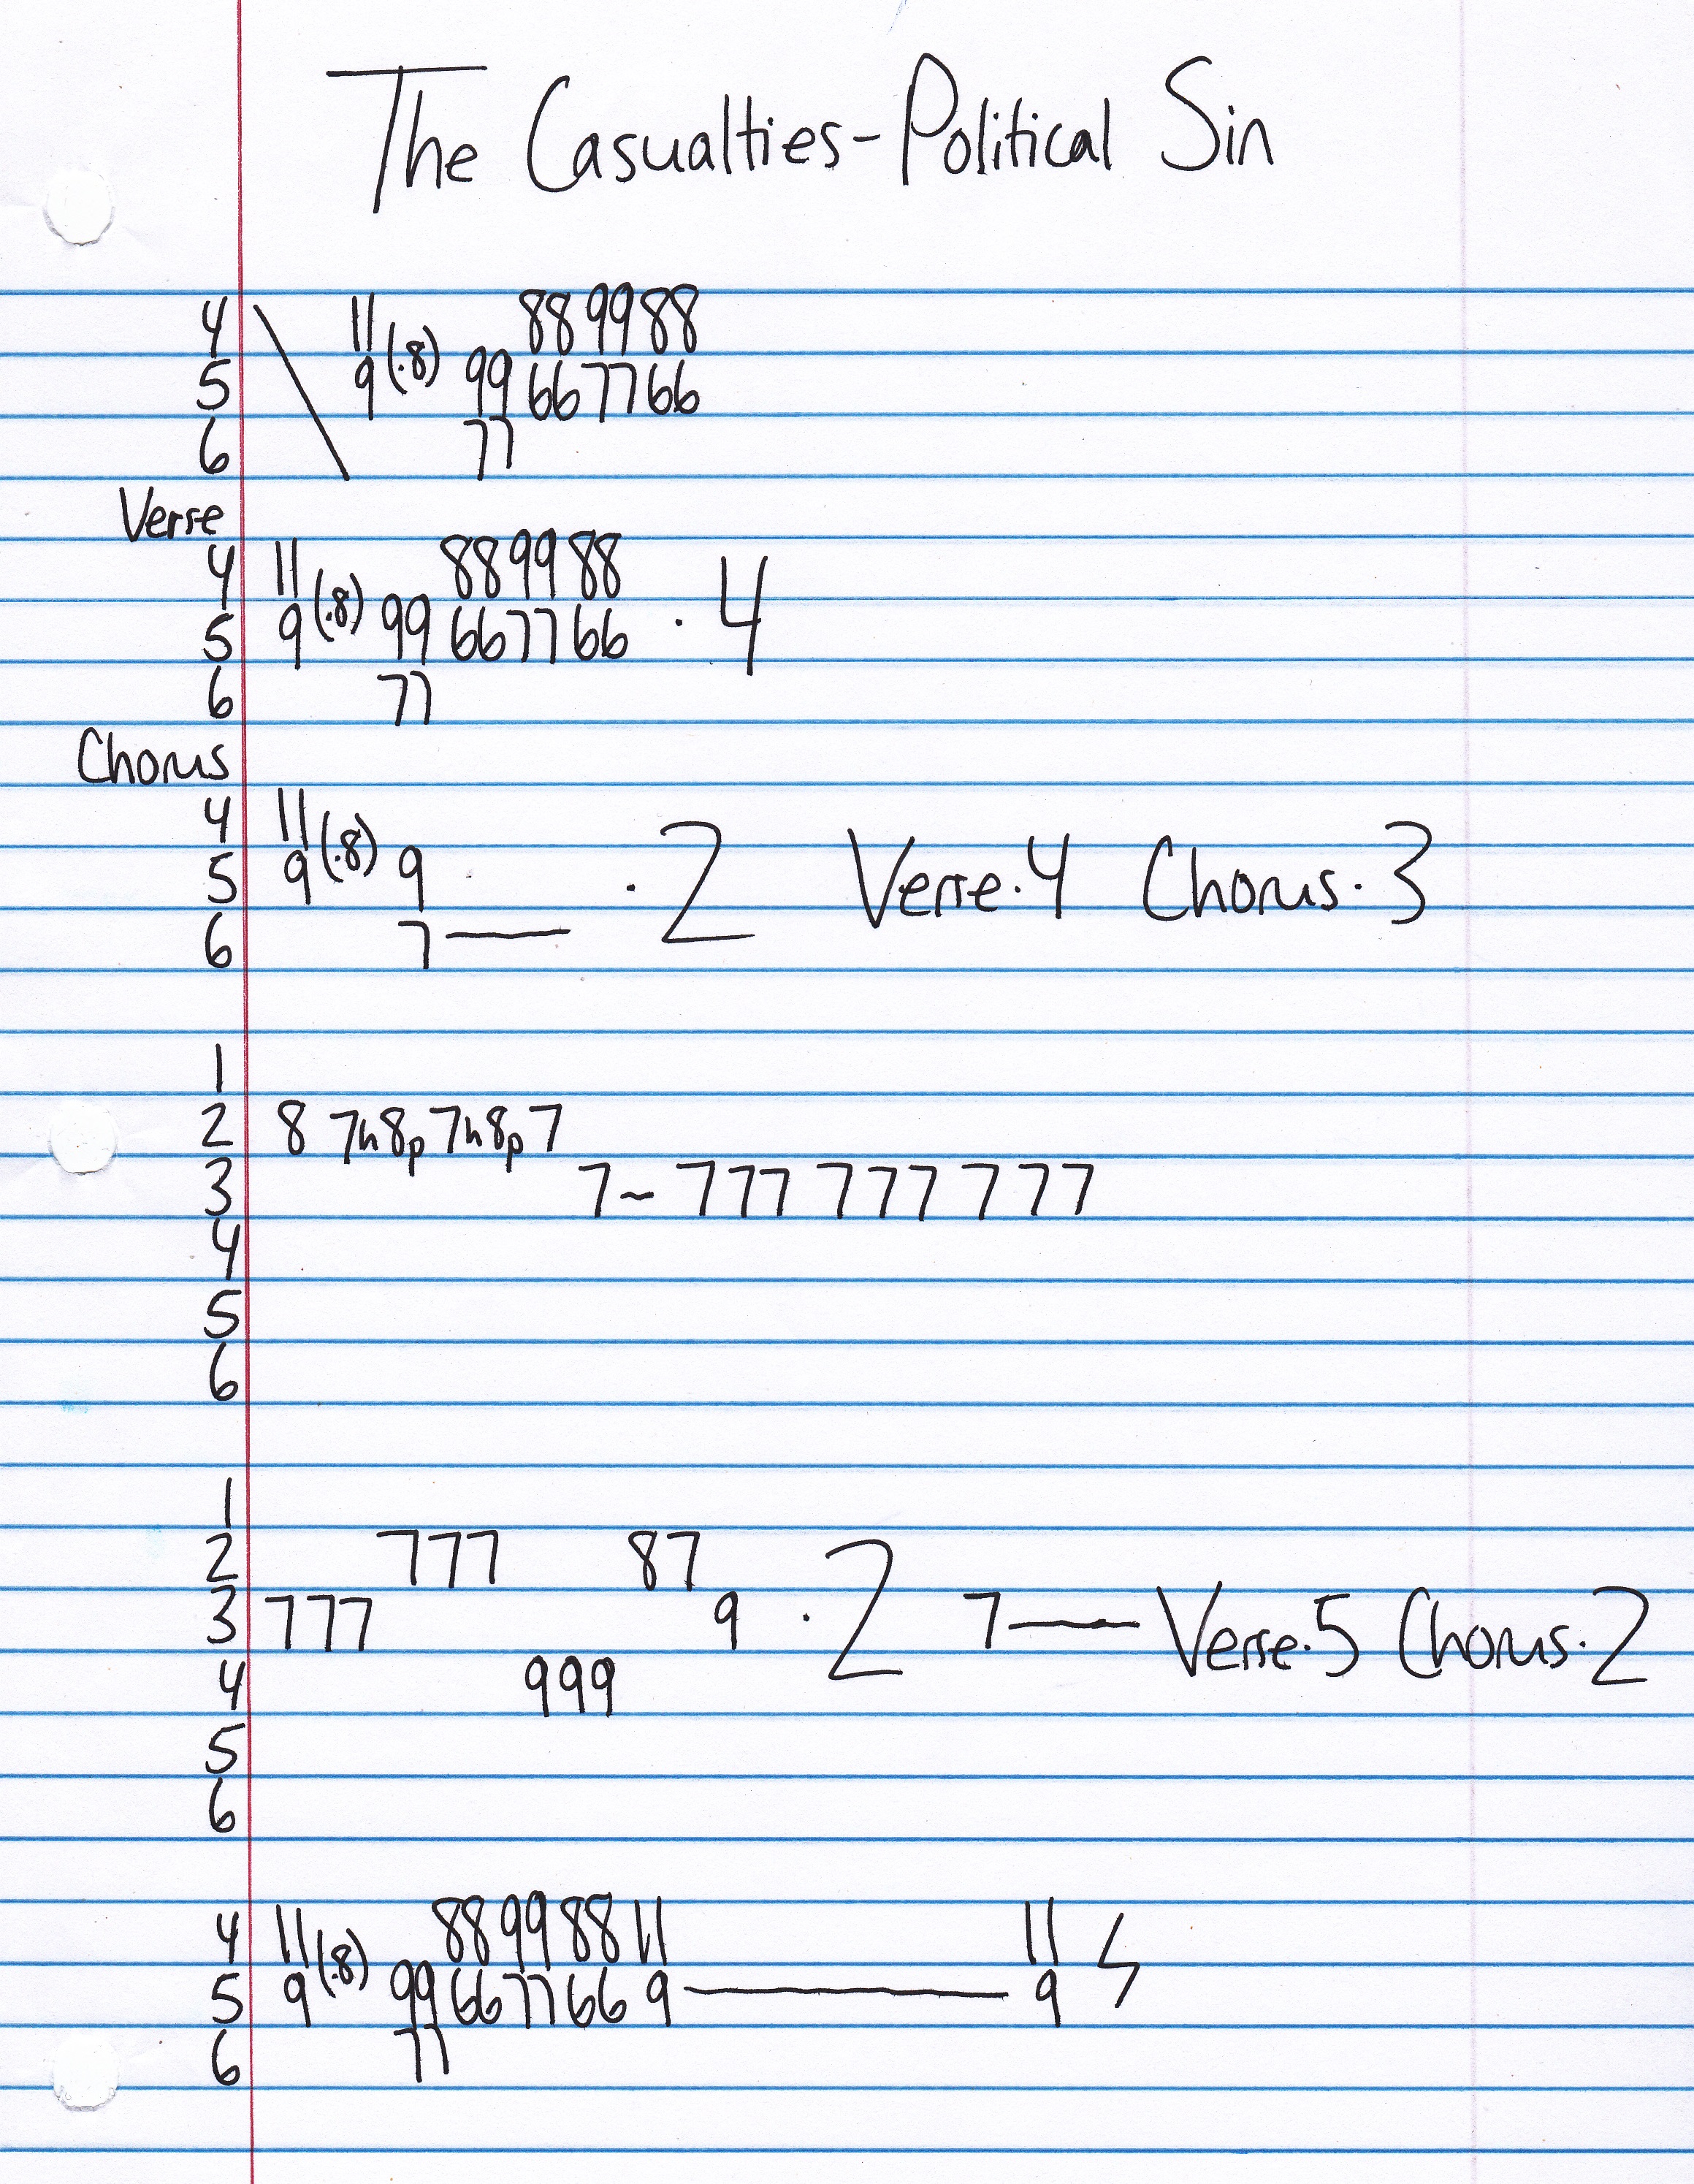 The Casualties-Political Sin
4 \ 11 (.8) 88 99 88
5 9 99 66 77 66
6 77
Verse
4 11 (.8) 88 99 88
5 9 99 66 77 66 . 4
6 77
Chorus
4 11 (.8)
5 9 9 . 2 Verse.4 Chorus.3
6 7—
1
2 8 7h8p7h8p7
3 7~ 777 777 777
4
5
6
1
2 777 87
3 777 9 . 2 7— Verse.5 Chorus.2
4 999
5
6
4 11 (.8) 88 99 88 11 11
5 9 99 66 77 66 9 — 9
6 77